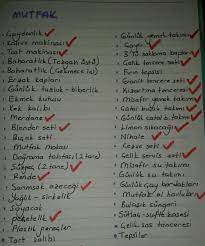 MUTFAK
Çaydanlık
Kahve makinası
Tost makinası
Baharatlık (Tezgah üstü)
Baharatlık (Çekmece içi)
Erzak kapları
Günlük tuzluk-biberlik
Ekmek kutusu
Kek kalıbı
Merdane
Blender seti
Biçak seti
Mutfak masası
Doğrama tahtası (2 tane)
Süzgeç (2 tane)
Rende
Sarımsak ezeceği
Yağlık-sirkelik
Soyacak
peçetelik
Plastik pençeler
Tart kalıbı
Günlük yemek takımı
Saklama kapları
Çelik tencere seti
Fırın tepsisi
Granit tencere seti
Kızartma tenceresi
Misafir yemek takımı
Çatal bıçak takımı
Günlük çatal b. takımı
Limon sıkacağı
Nihale
Cezve seti
Çelik servis seti
Misafir su takımı
Günlük su takımı
Günlük çay bardakları
Mutfak el havluları
Bulaşık süngeri
Sütlaç-sufle kasesi
Çelik sos tenceresi
Tepsiler